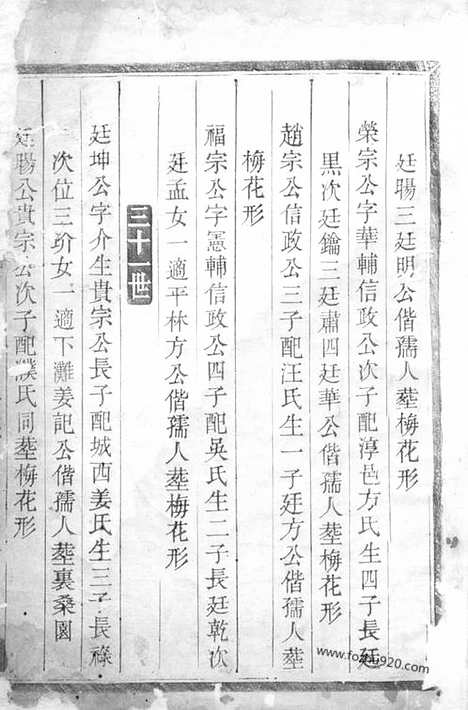 廷暘三廷明公偕孺人塟梅花形
榮宗公字華輔信政公次子配淳邑方氏生四子長廷
黑次廷鑰三廷肅四廷華公偕孺人塟梅花形
趙宗公信政公三子配汪氏生一子廷方公偕孺人塟
梅花形
福宗公字憲輔信政公四子配吳氏生二子長廷乾次
廷孟女一適平林方公偕孺人塟梅花形
三十一世
廷坤公字介生貴宗公長子配城西姜氏生三子長祿
次位三玠女一適下灘姜記公偕孺人塟裏桑園
廷暘公貴宗公次子配濮氏同塟梅花形
www.foxtang920.com